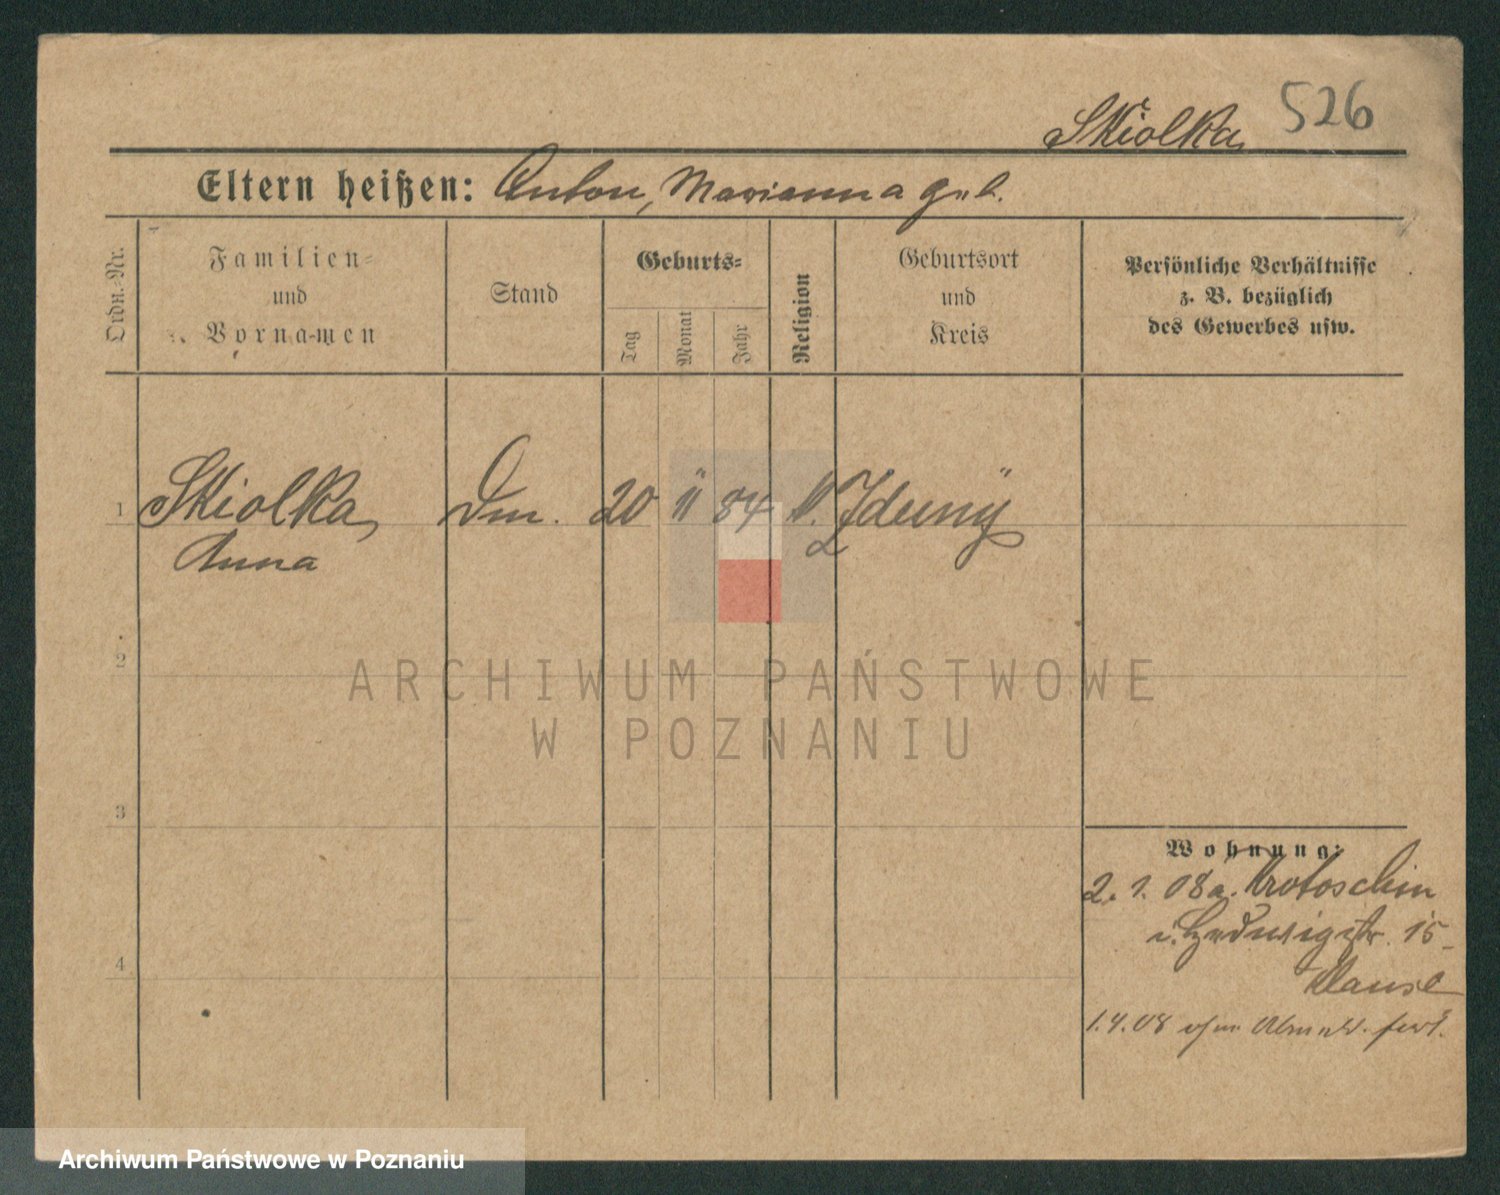 Skiolka 526
Eltern heißen: Anton, Marianna geb.
Ordn.-Nr.
Familien- und Vornamen
Stand
Geburts-
Tag
Monat
Jahr
Religion
Geburtsort und Kreis
Persönliche Verhältnisse
z. B. bezüglich
des Gewerbes usw.
1 Skiolka, 20 11 84 Zduny
Anna
2
3
4
Wohnung:
2. 1. 08 Krotoschin
Hedwigstr. 15
1.4.08 fort.
ARCHIWUM PAŃSTWOWE
W POZNANIU
Archiwum Państwowe w Poznaniu